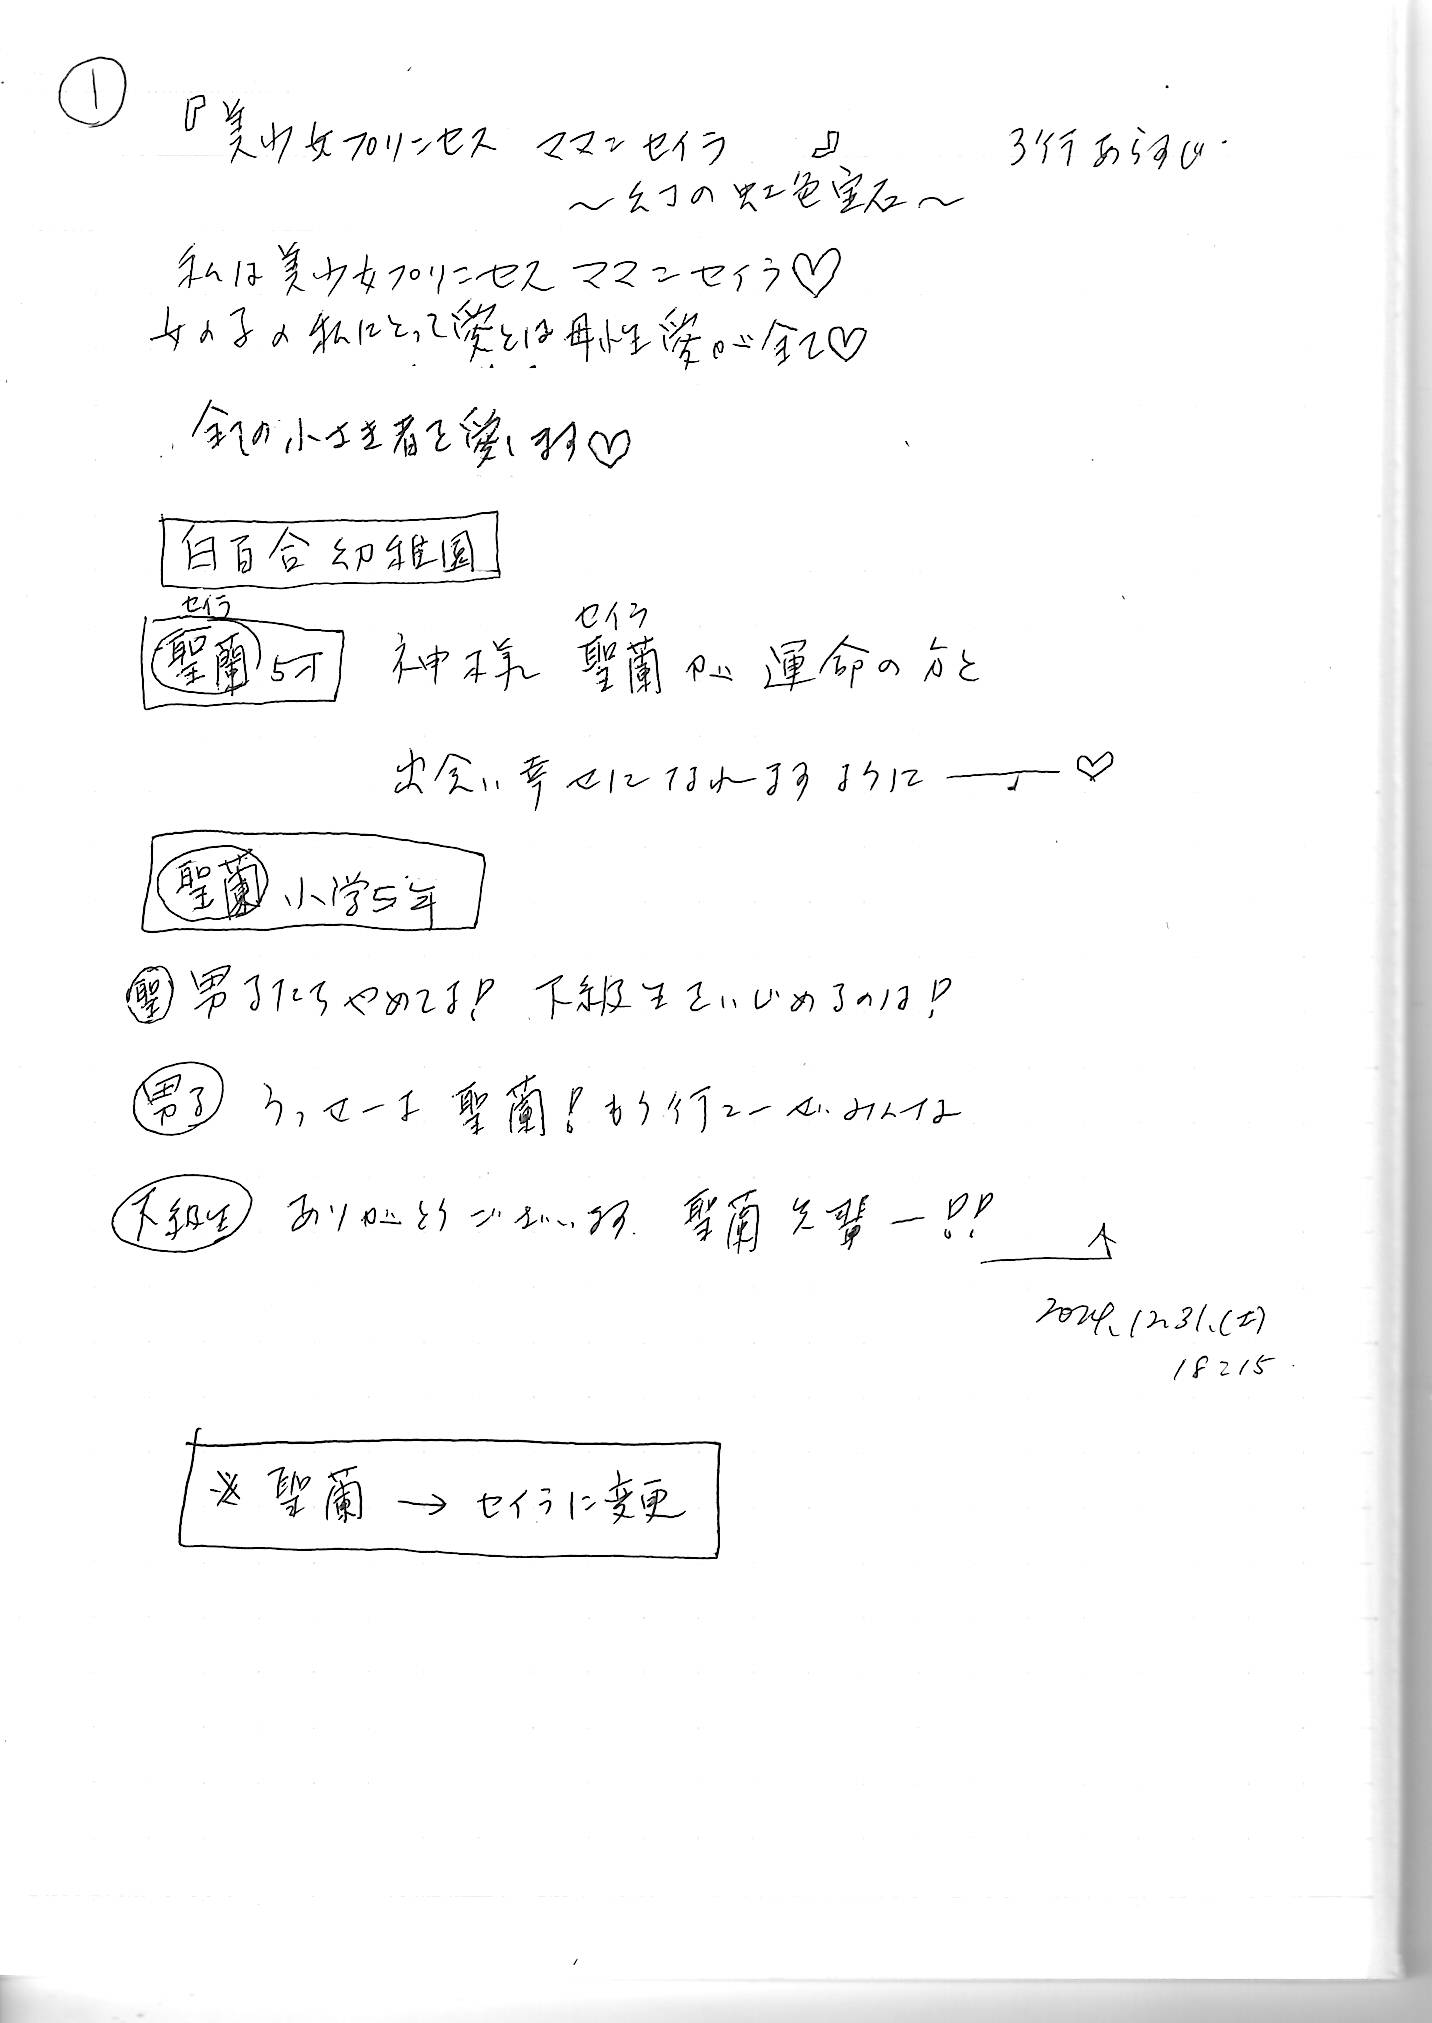 ①
『美少女プリンセス ママンセイラ 』 3行あらすじ
〜幻の虹色宝石〜
私は美少女プリンセス ママンセイラ♡
女の子の私にとって愛とは母性愛が全て♡
全ての小さき者を愛します♡
白百合幼稚園
セイラ セイラ
聖蘭 5才 神様 聖蘭が運命の方と
出会い幸せになれますように――♡
聖蘭 小学5年
聖 男子たちやめてよ! 下級生をいじめるのは!
男子 うっせーよ 聖蘭! もう行こーぜみんな
下級生 ありがとうございます 聖蘭先輩ー!!
2024.12.31.(土)
18:15
※聖蘭→セイラに変更